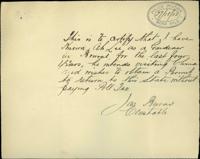 This is to certify that I have
known Ah Lee as a Gardener
in Bowral for the last four
years, he intends visiting China
and wishes to obtain a Permit
to return to this state without
paying Poll Tax.
Jas
Constable